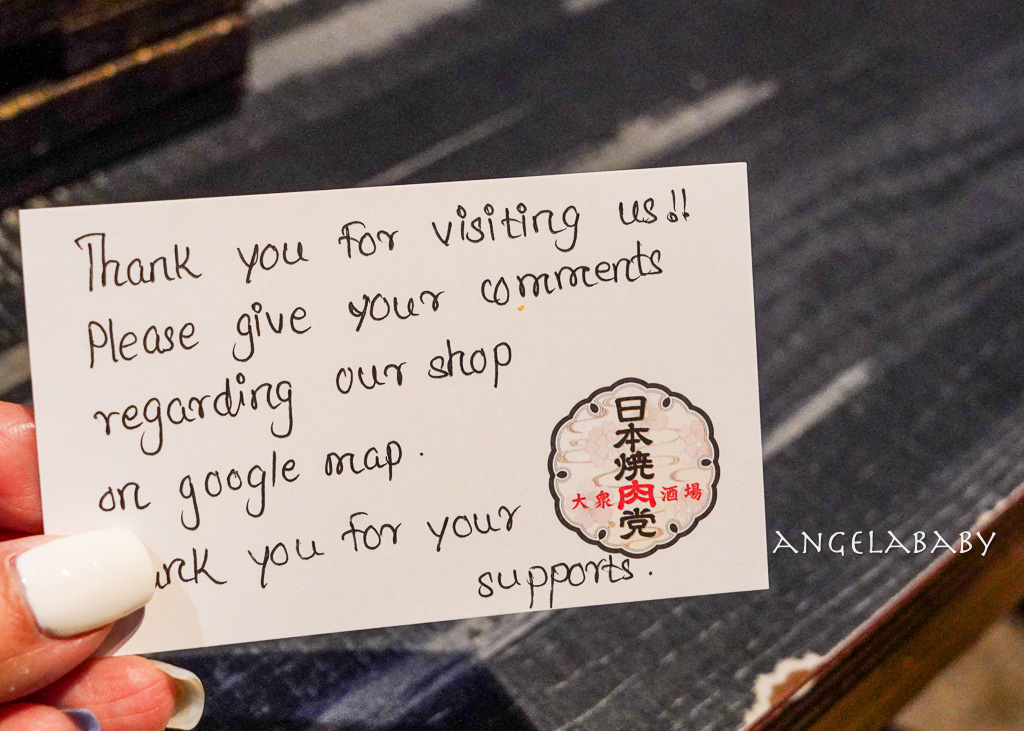 Thank you for visiting us!!
Please give your comments
regarding our shop
on google map.
ank you for your
supports.
日本焼肉党
大衆肉酒場
ANGELABABY